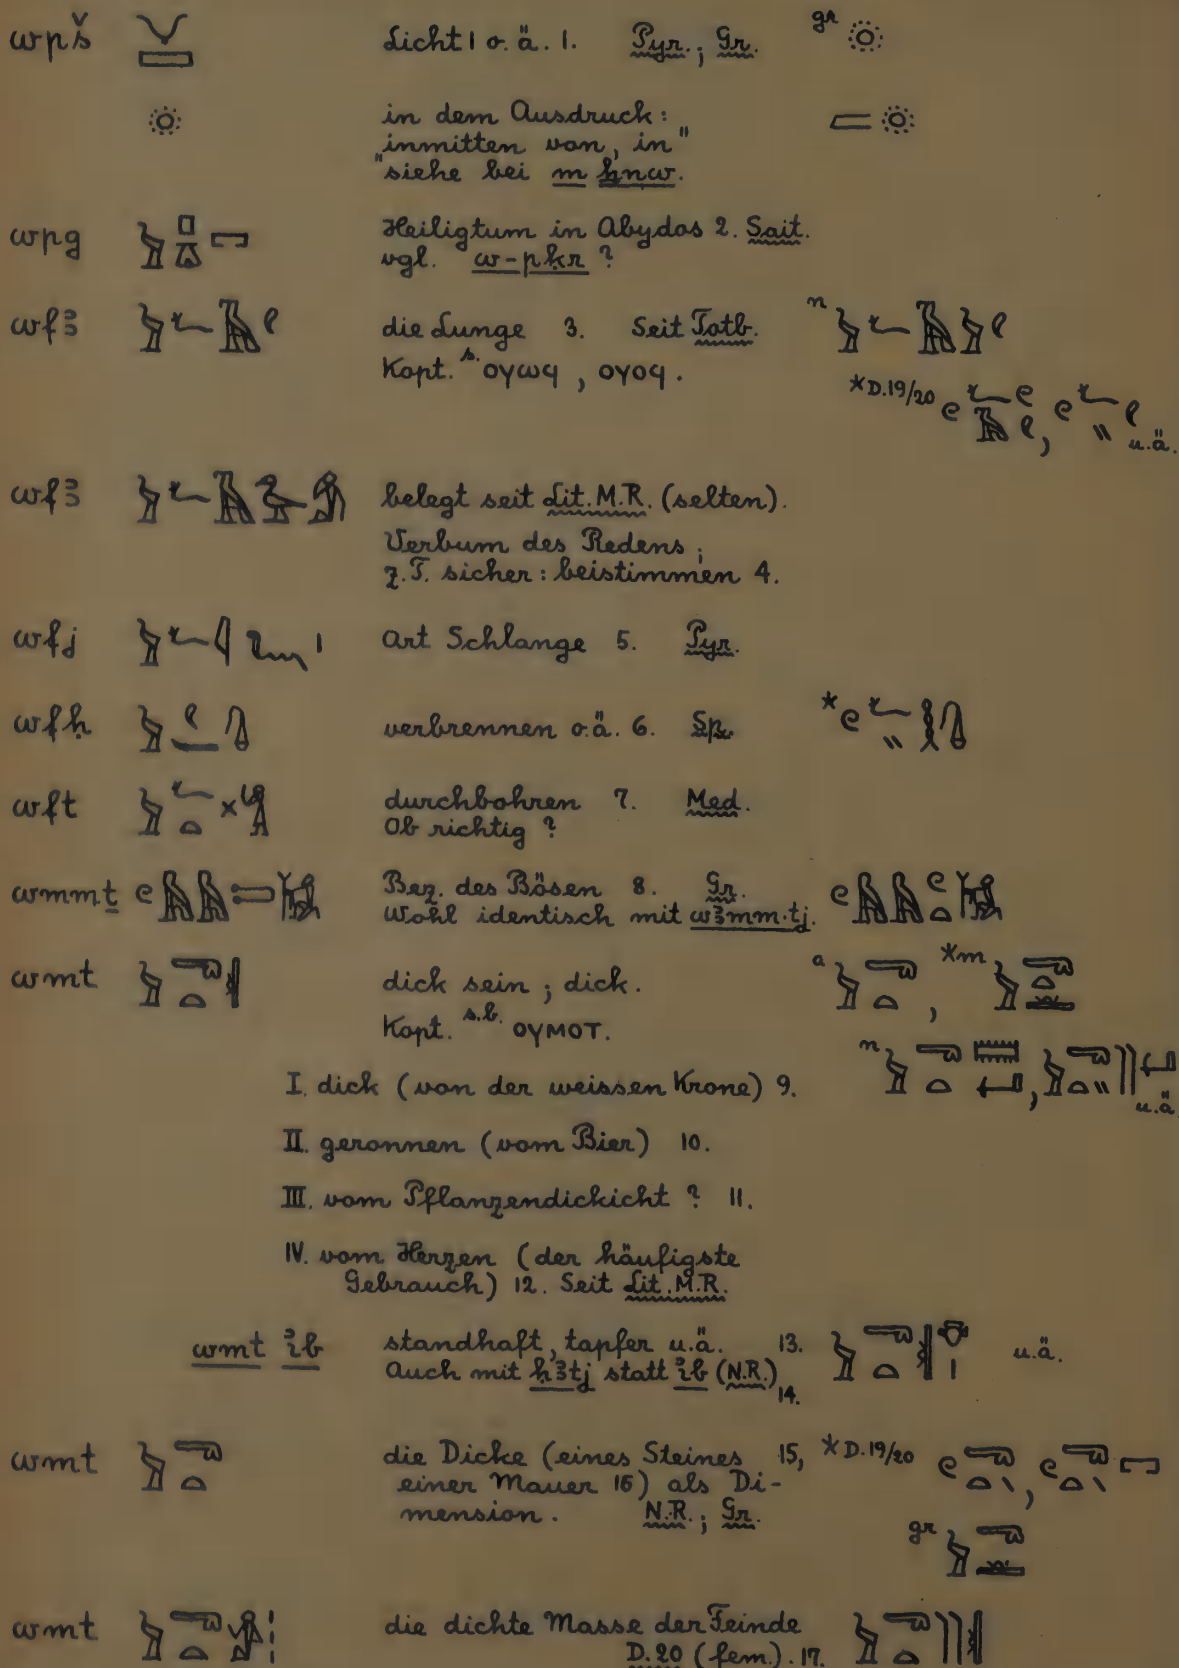 wpš Licht I o. ä. 1. Pyr.; Gr. gr
in dem Ausdruck:
„inmitten von, in"
siehe bei m ẖnw.
wpg Heiligtum in Abydos 2. Sait.
vgl. w-pḳr ?
wfꜣ die Lunge 3. Seit Totb. n
Kopt. s. ⲟⲩⲱϥ, ⲟⲩⲟϥ. *D.19/20
u.ä.
wfꜣ belegt seit Lit. M.R. (selten).
Verbum des Redens;
z.T. sicher: beistimmen 4.
wfj Art Schlange 5. Pyr.
wfḥ verbrennen o.ä. 6. Sp. *
wft durchbohren 7. Med.
Ob richtig ?
wmmṯ Bez. des Bösen 8. Gr.
Wohl identisch mit wꜣmm.tj.
wmt dick sein; dick. a , *m
Kopt. s.b. ⲟⲩⲙⲟⲧ.
n , u.ä.
I. dick (von der weissen Krone) 9.
II. geronnen (vom Bier) 10.
III. vom Pflanzendickicht ? 11.
IV. vom Herzen (der häufigste
Gebrauch) 12. Seit Lit. M.R.
wmt ꞽb standhaft, tapfer u.ä. 13. u.ä.
Auch mit ḥꜣtj statt ꞽb (N.R.) 14.
wmt die Dicke (eines Steines 15, *D.19/20
einer Mauer 16) als Di-
mension. N.R.; Gr.
gr
wmt die dichte Masse der Feinde
D.20 (fem.). 17.